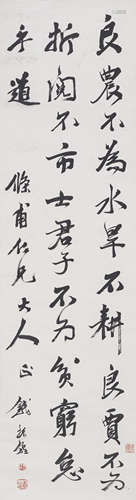 良農不為水旱不耕良賈不為
折閱不市士君子不為貧窮怠
乎道
倏甫仁兄大人正